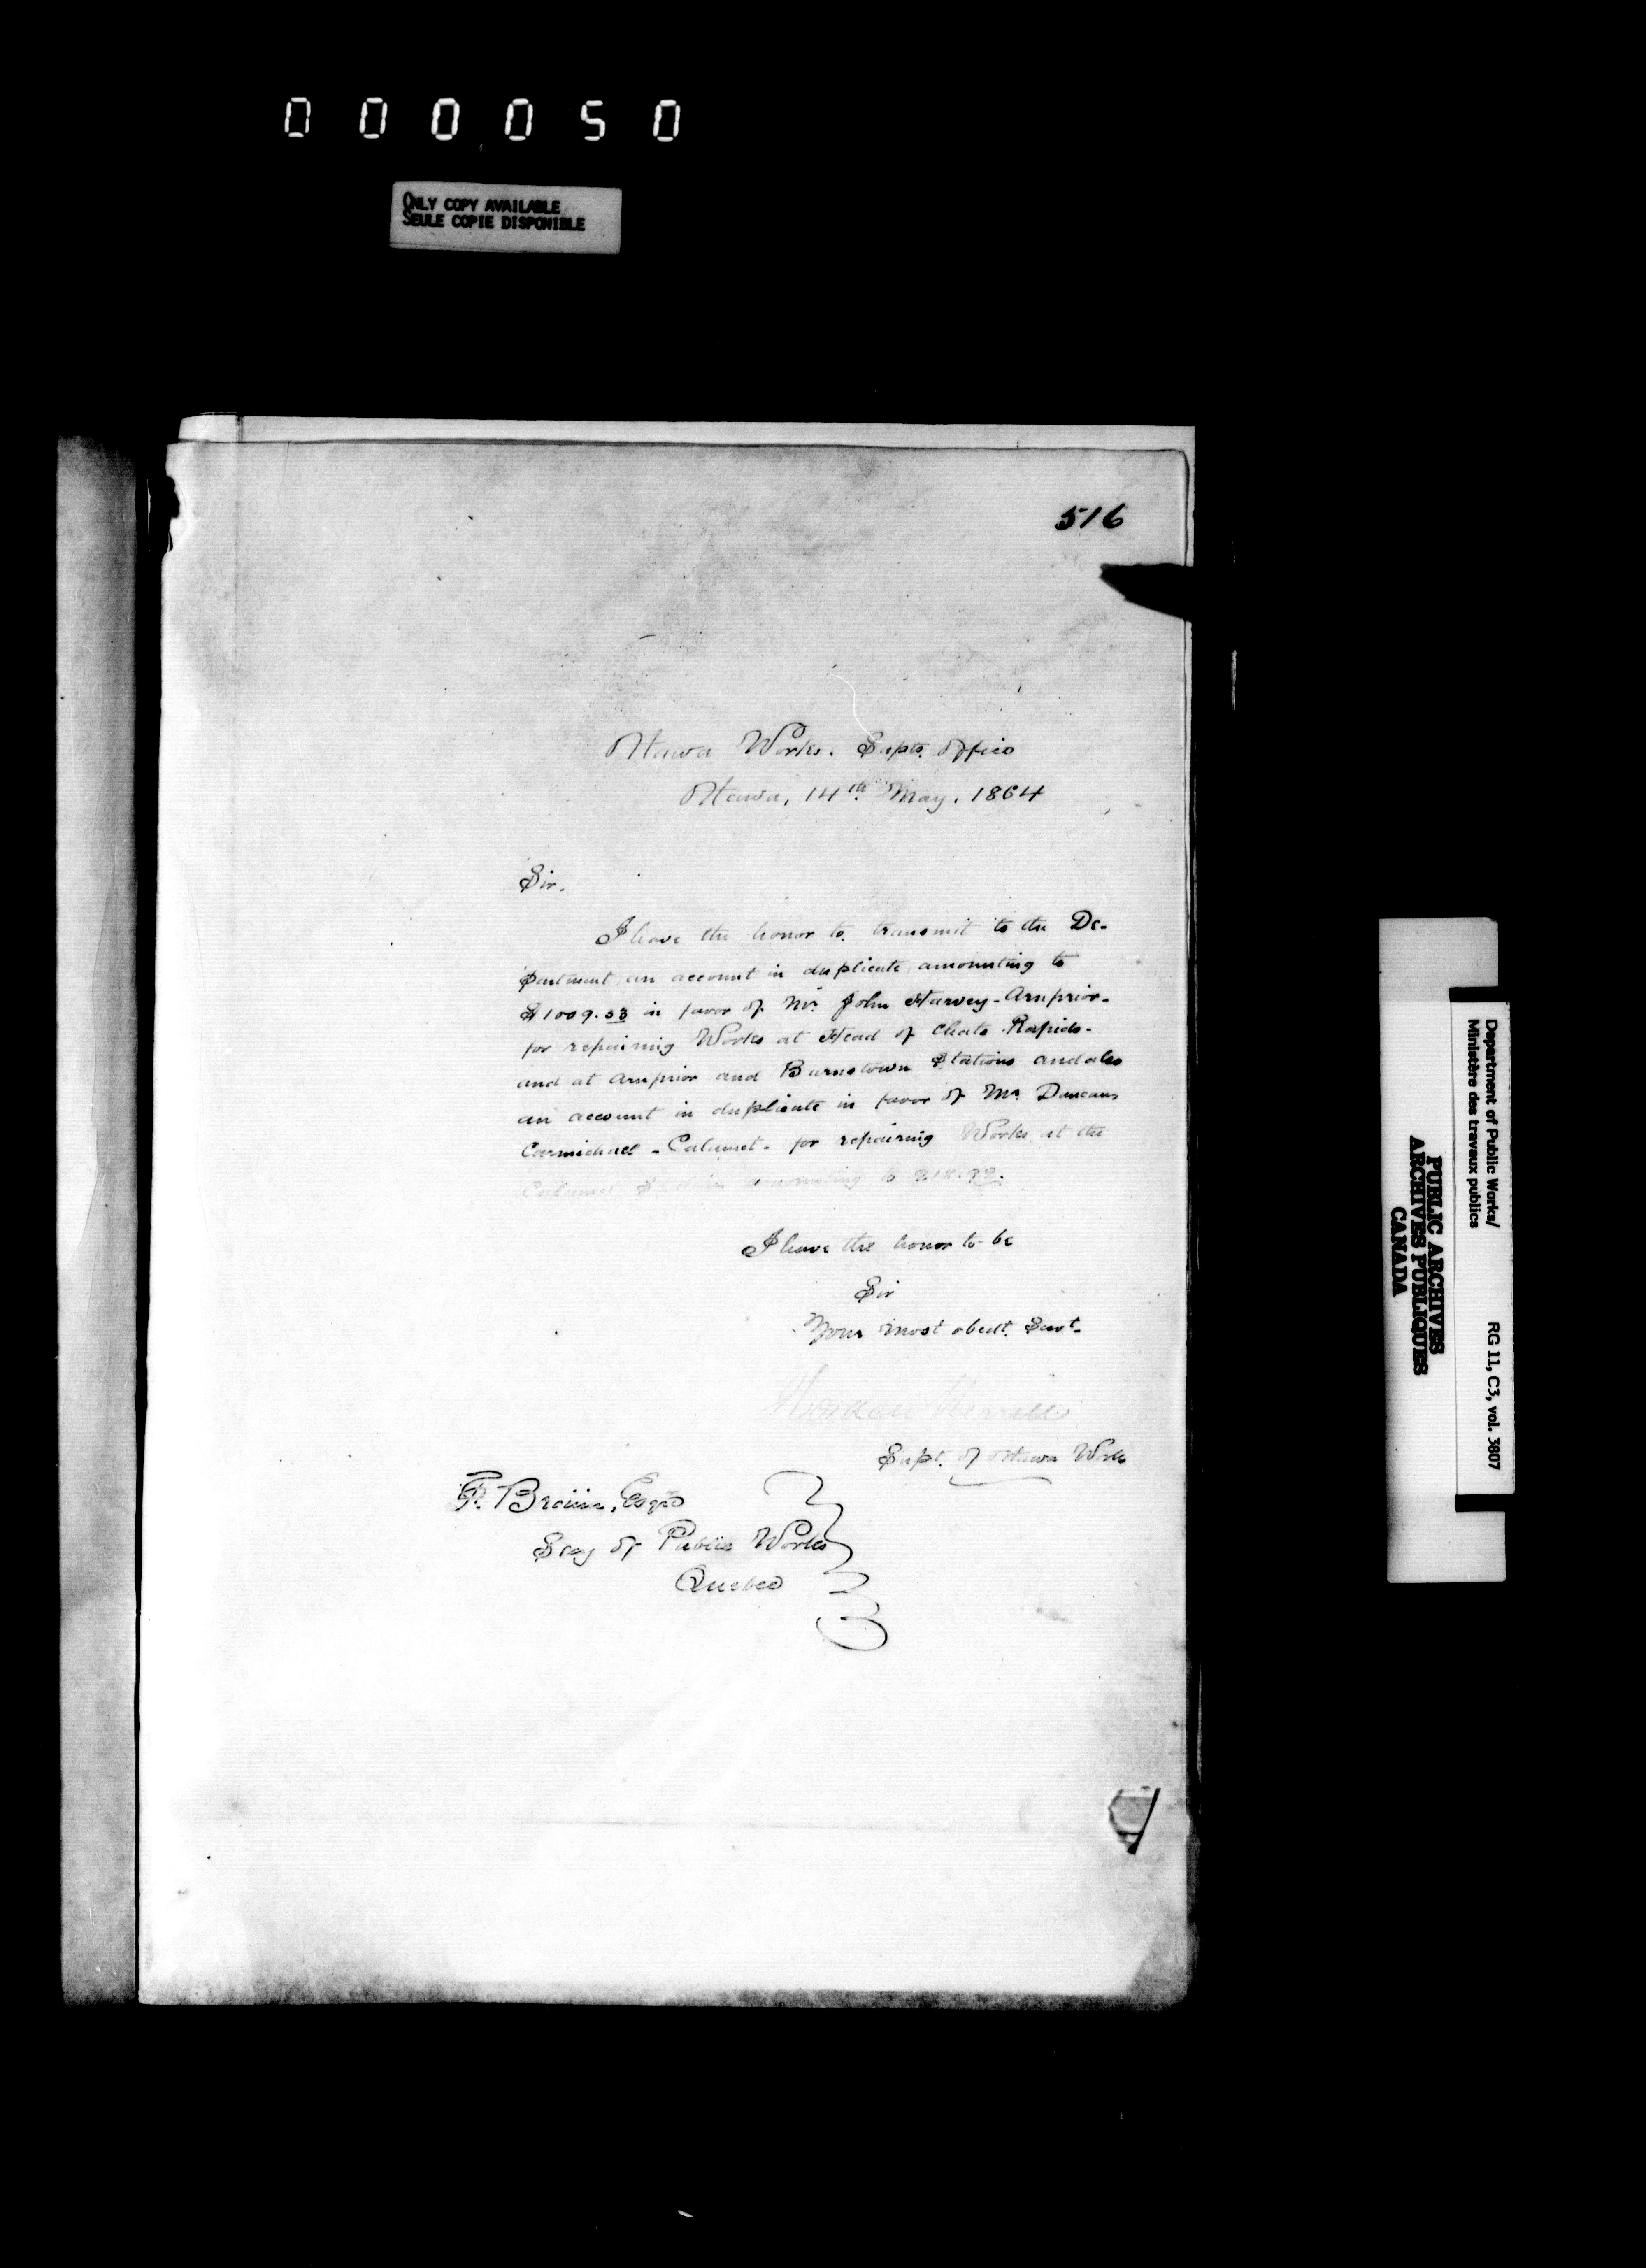 000050
ONLY COPY AVAILABLE
SEULE COPIE DISPONIBLE
516
Ottawa Works. Supts. Office
Ottawa, 14th May, 1864
Sir.
I have the honor to transmit to the De-
partment an account in duplicate amounting to
$1009.53 in favor of Mr. John Harvey - Arnprior -
for repairing Works at Head of Chats Rapids -
and at Arnprior and Burnstown Stations and also
an account in duplicate in favor of Mr. Duncan
Carmichael - Calumet - for repairing Works at the
Calumet Station amounting to
I have the honor to be
Sir
Your most obedt. Servt.
Horace Merrill
Supt. of Ottawa Works
F. Braün, Esqre
Secy of Public Works
Quebec
Department of Public Works/
Ministère des travaux publics
RG 11, C3, vol. 3807
PUBLIC ARCHIVES
ARCHIVES PUBLIQUES
CANADA